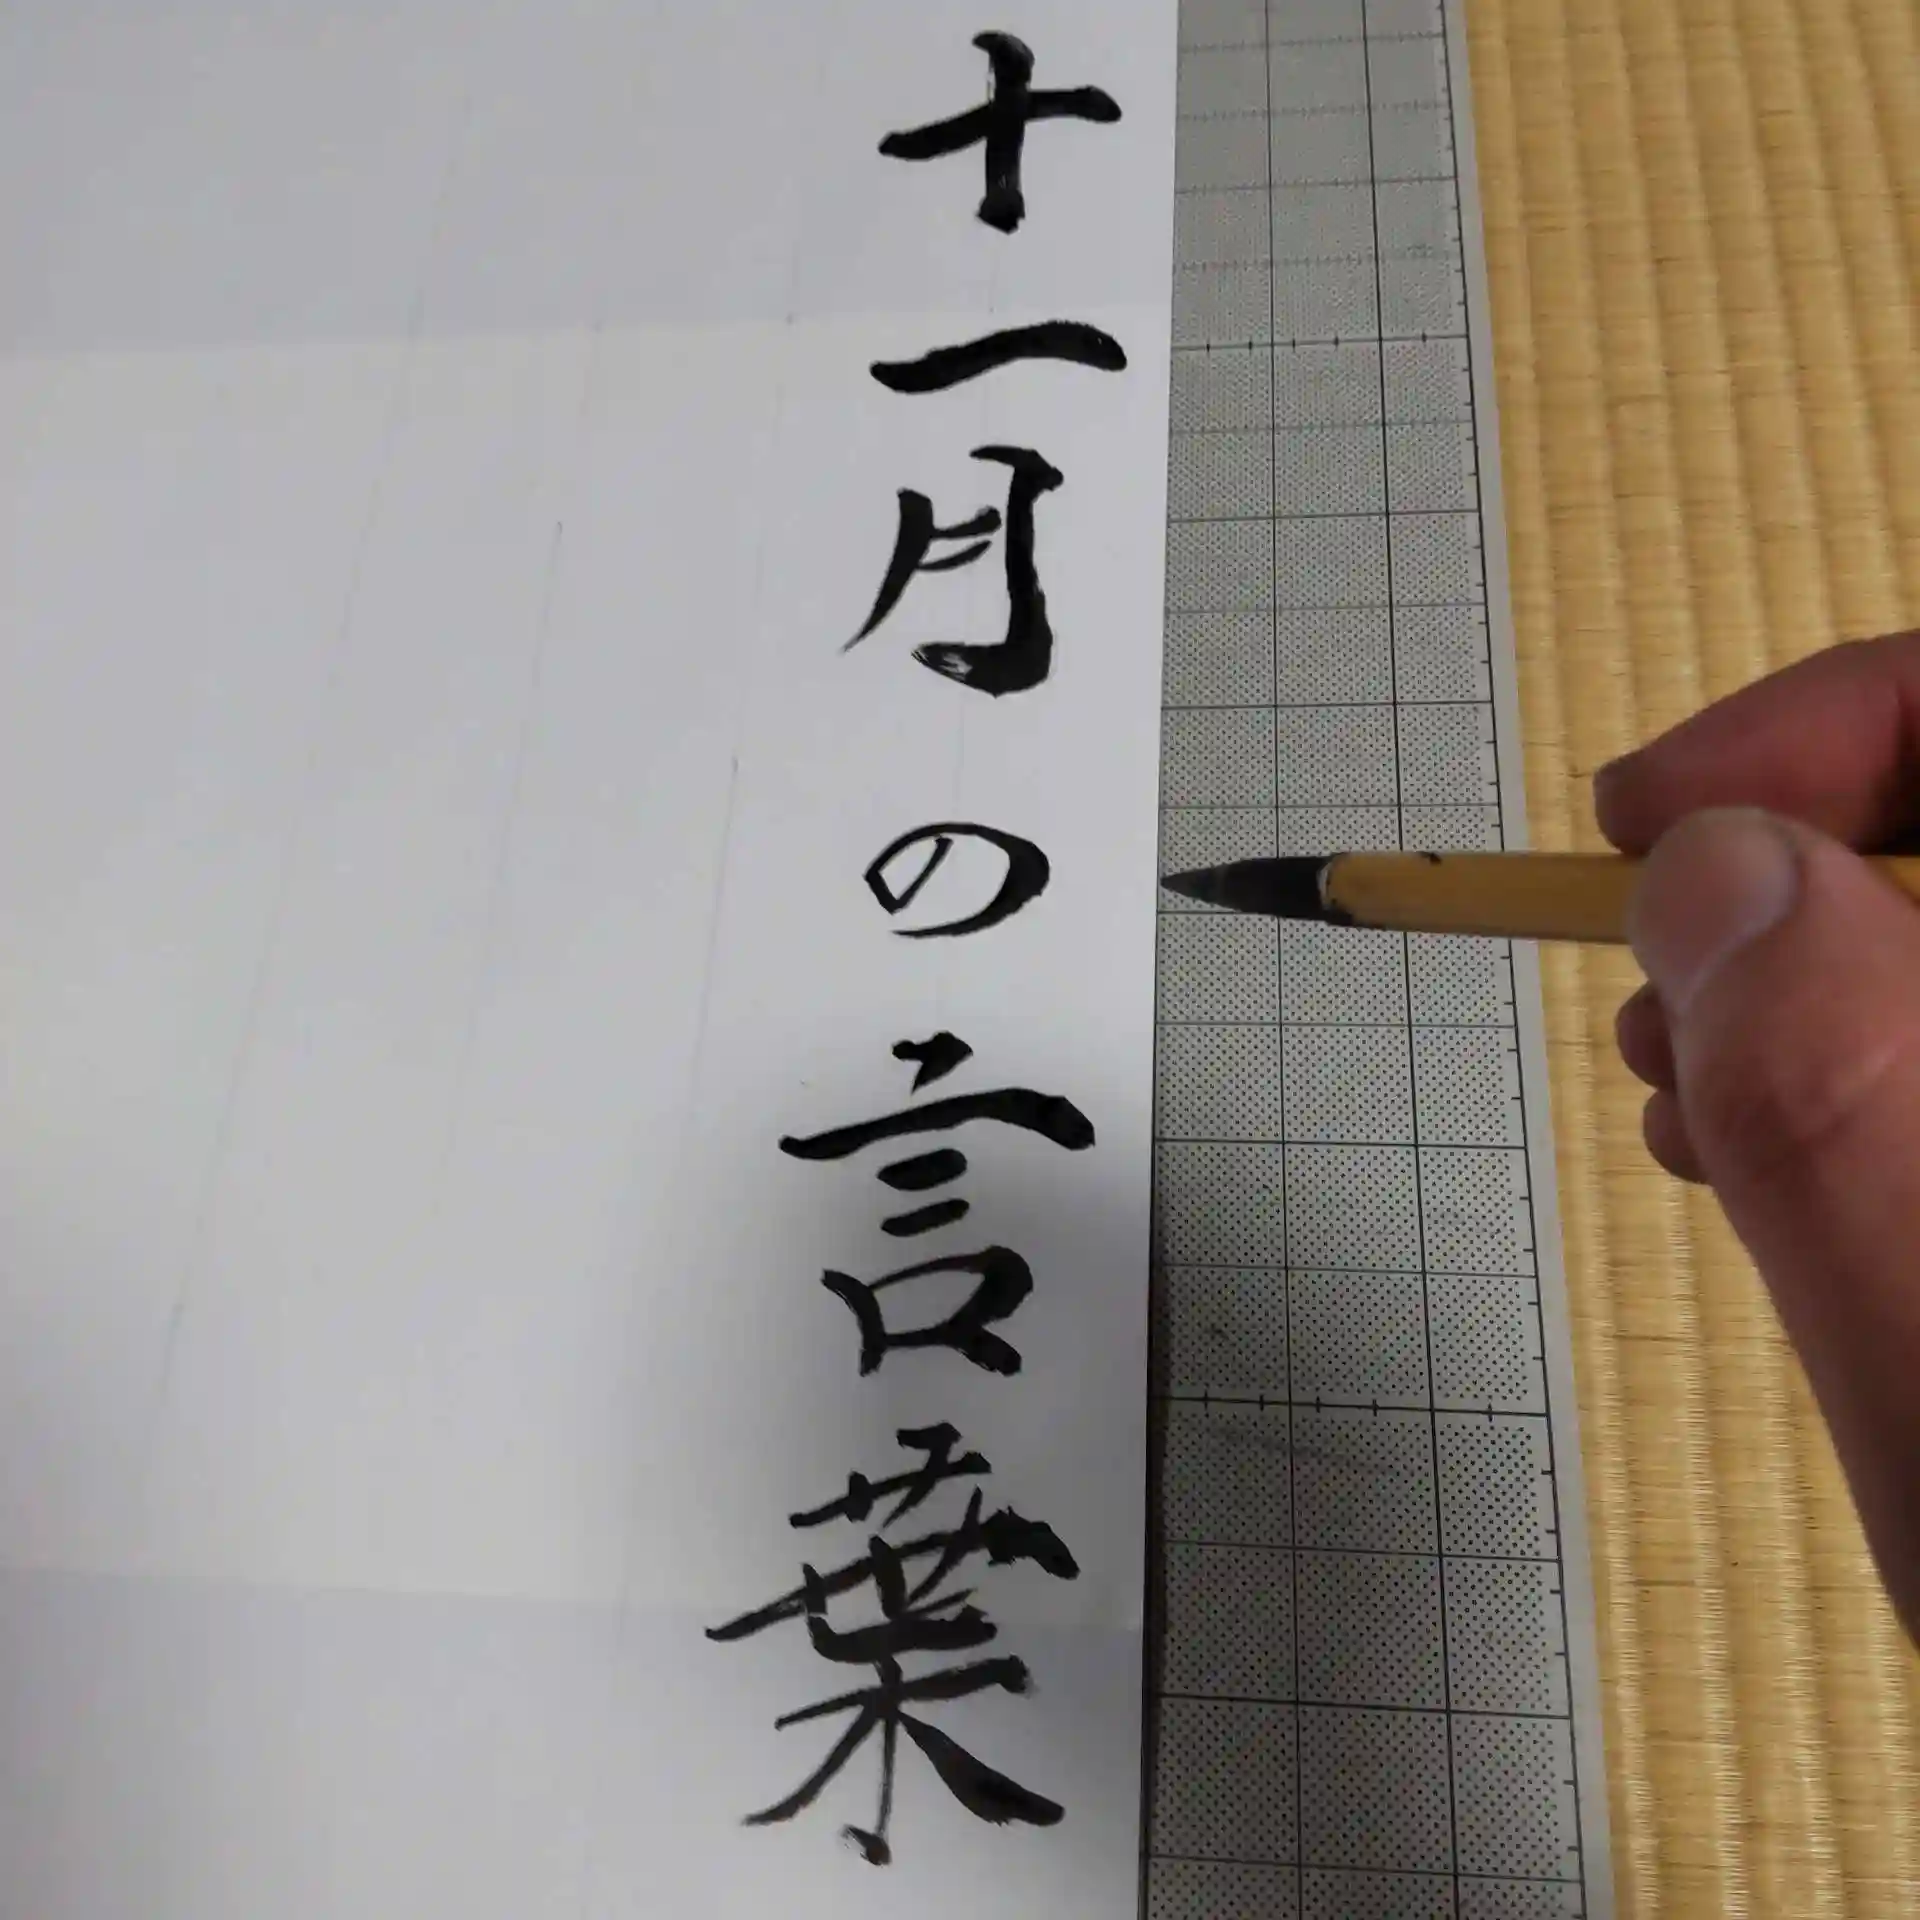 十一月の言葉